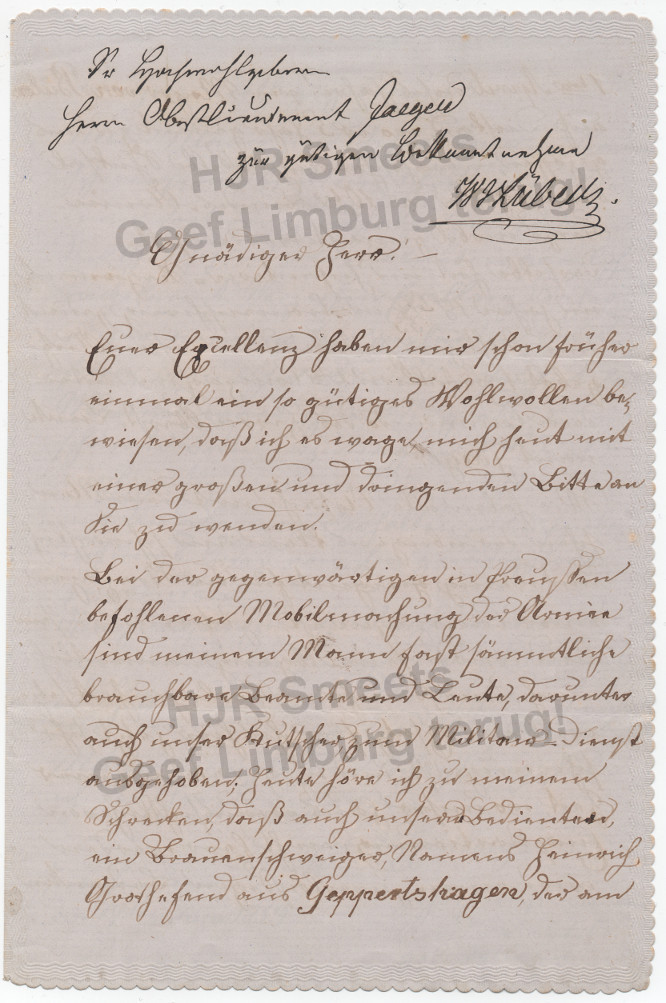 Sr Hochwohlgeboren
Herrn Obristlieutenant Jaeger
zur gütigen Bekanntnahme
WKübeck
Gnädiger Herr! —
Euer Excellenz haben mir schon früher
einmal ein so gütiges Wohlwollen be-
wiesen, daß ich es wage, mich heut mit
einer großen und dringenden Bitte an
Sie zu wenden.
Bei der gegenwärtigen in Preussen
befohlenen Mobilmachung der Armee
sind meinem Mann fast sämmtliche
brauchbare Beamte und Leute, darunter
auch unser Kutscher zum Militair-Dienst
ausgehoben. Heute höre ich zu meinem
Schrecken, daß auch unser Bedienter,
ein Braunschweiger, Namens Heinrich
Grothefend aus Geppertshagen, der am
HJR Smeets
Geef Limburg terug!
HJR Smeets
Geef Limburg terug!